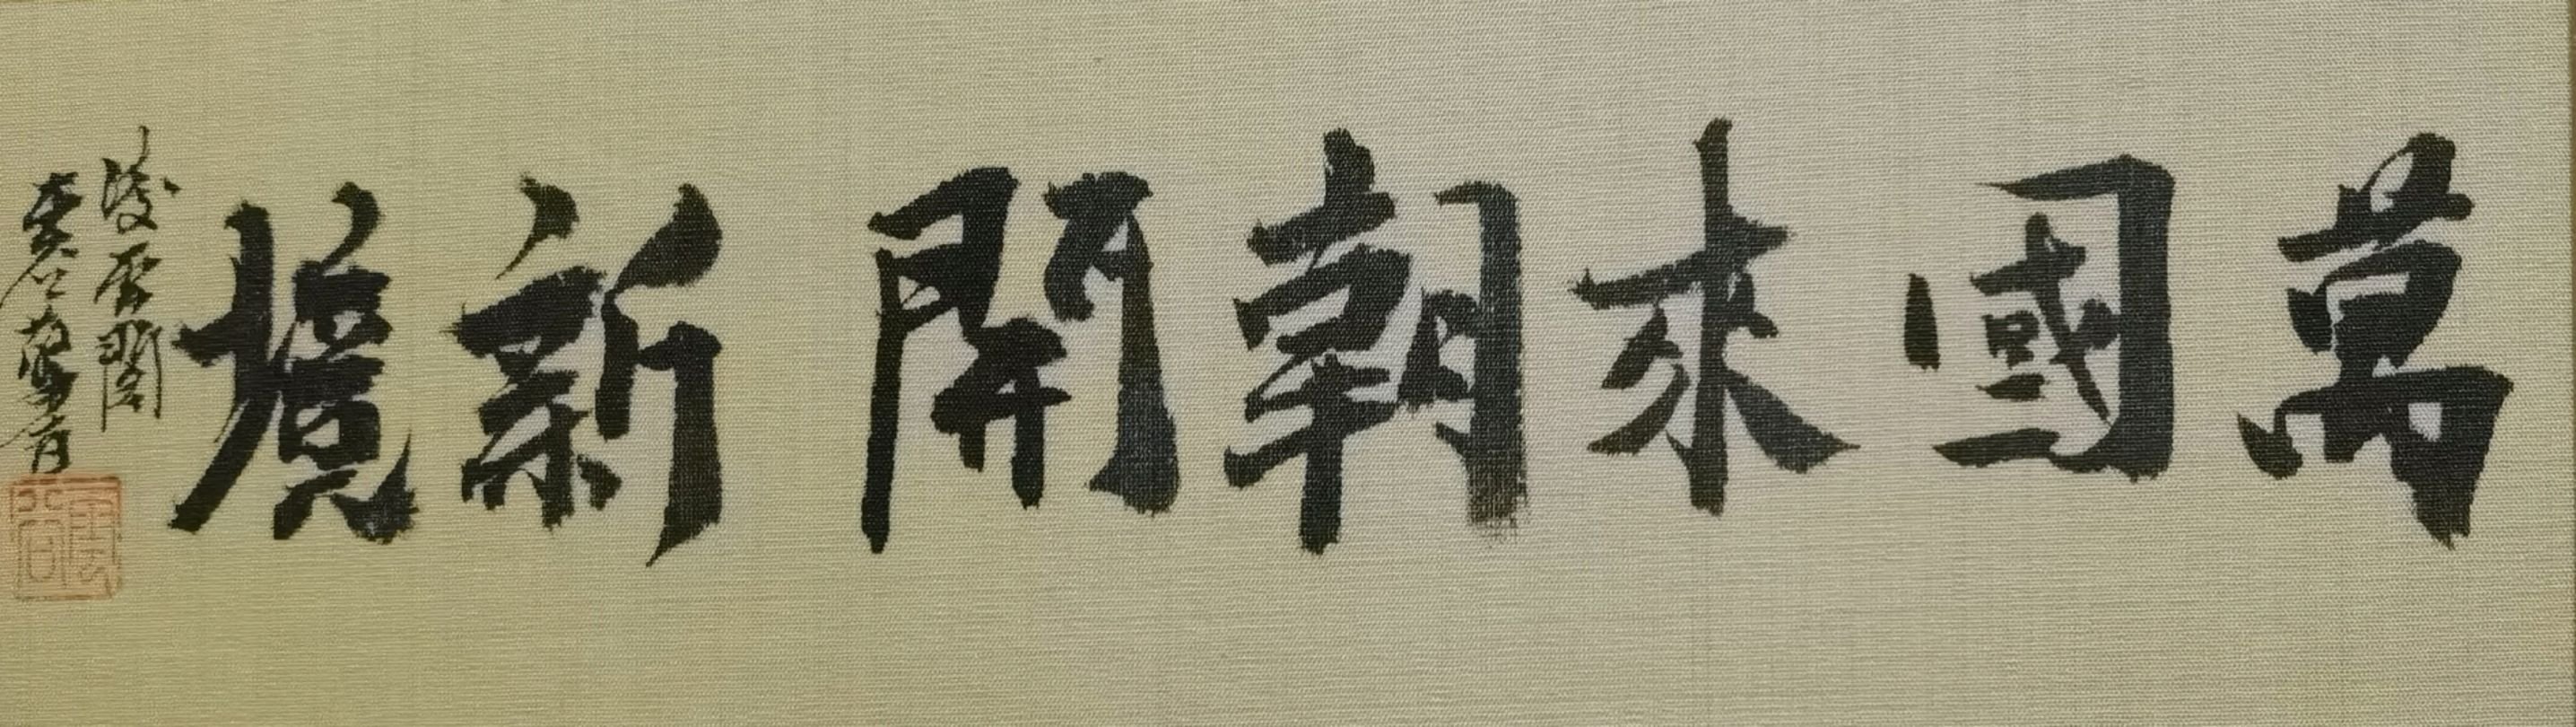 萬國來朝開新境
凌雲閣